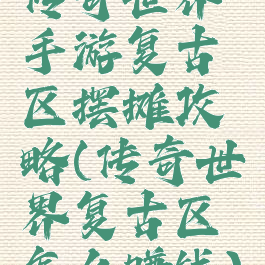 传奇世界
手游复古
区摆摊攻
略(传奇世
界复古区
怎么赚钱)